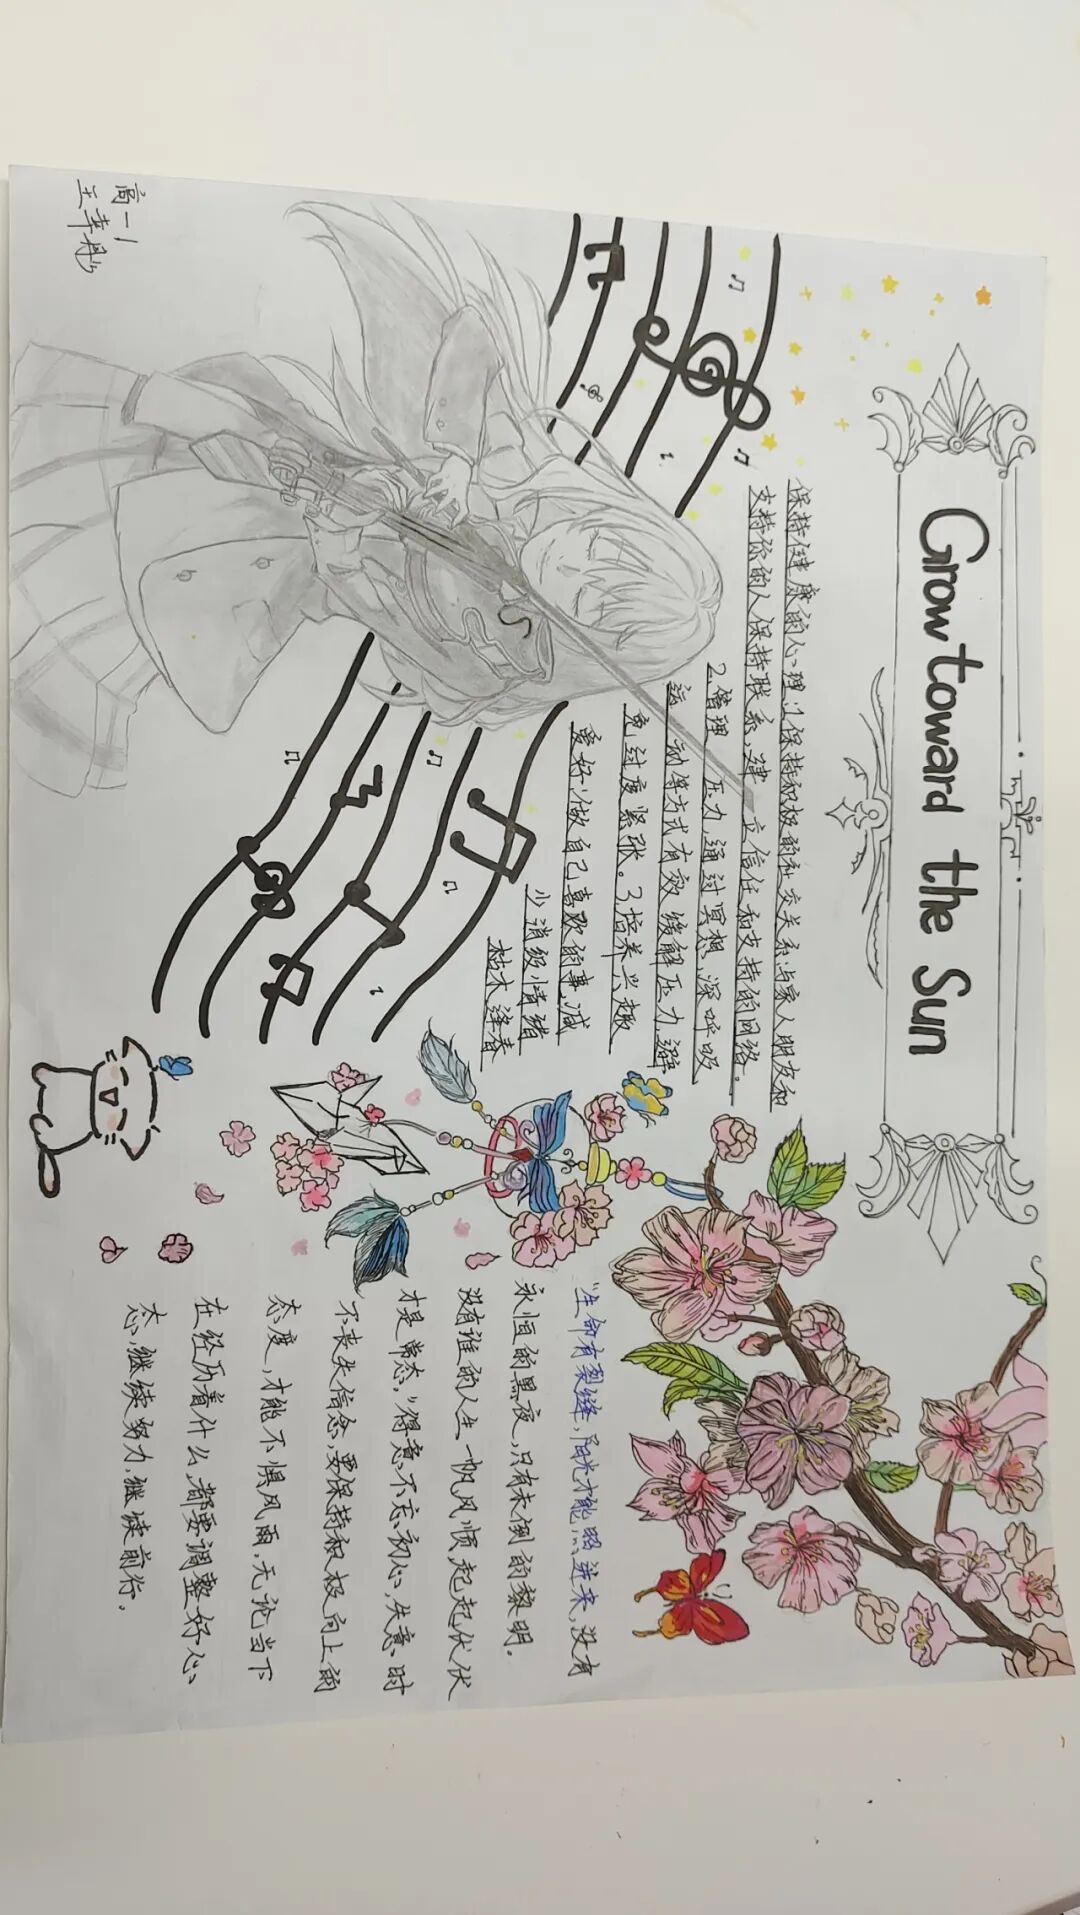 Grow toward the Sun
保持健康的心理:1.保持积极的社交关系,与家人朋友和
支持你的人保持联系,建立信任和支持的网络。
2.管理压力,通过冥想,深呼吸
运动等方式有效缓解压力,避
免过度紧张。3.培养兴趣
爱好:做自己喜欢的事,减
少消极情绪
枯木逢春
"生命有裂缝,阳光才能照进来,没有
永恒的黑夜,只有未到的黎明。
没有谁的人生一帆风顺,起起伏伏
才是常态,"得意不忘初心,失意时
不丧失信念,要保持积极向上的
态度,才能不惧风雨,无论当下
在经历着什么,都要调整好心
态,继续努力,继续前行。
高一1
王幸彤